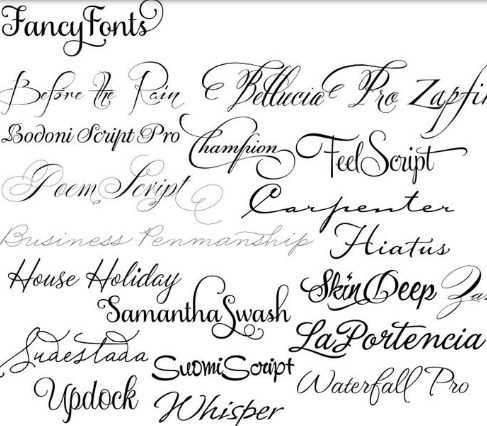 FancyFonts
Before the Rain
Bellucia Pro
Zapfin
Bodoni Script Pro
Champion
FeelScript
PoemScript
Carpenter
Business Penmanship
Hiatus
House Holiday
SkinDeep
Za
SamanthaSwash
LaPortencia
Sudestada
SuomiScript
Waterfall Pro
Updock
Whisper